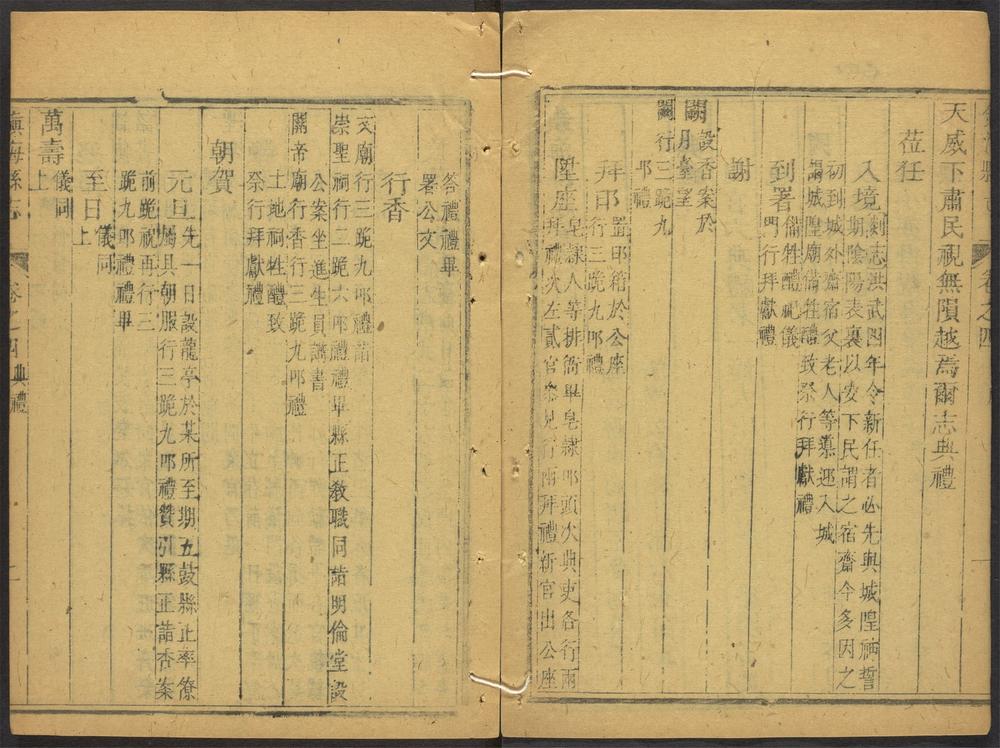 天威下肅民視無隕越爲爾志典禮
莅任
入境
剡志洪武四年令新任者必先與城隍神誓
期陰陽表裏以安下民謂之宿齋今多因之
初到城外齋宿父老人等導迎入城
謁城隍廟備牲醴致祭行拜獻禮
到署
備牲醴祝儀
門行拜獻禮
謝
設香案於
闕
月臺望
闕行三跪九
叩禮
拜印
置印箱於公座
行三跪九叩禮
陞座
皂隸人等排衙畢皂隸叩頭次典吏各行兩
拜禮次左貳官參見行兩拜禮新官出公座
答禮禮畢
署公文
行香
文廟行三跪九叩禮詣
崇聖祠行二跪六叩禮禮畢縣正教職同詣明倫堂設
公案坐進生員講書
關帝廟行香行三跪九叩禮
土地祠牲醴致
祭行拜獻禮
朝賀
元旦
先一日設龍亭於某所至期五鼓縣正率僚
屬具朝服行三跪九叩禮贊引縣正詣香案
前跪祝再行三
跪九叩禮禮畢
至日
儀同
上
萬壽
儀同
上
鎮海縣志
卷之四
典禮
二